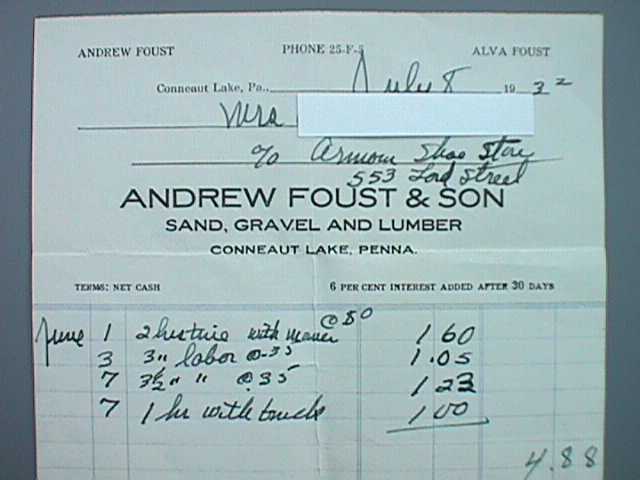 ANDREW FOUST PHONE 25-F-5 ALVA FOUST
Conneaut Lake, Pa., July 8 1932
Mrs
℅ Shoe Store
553 Street
ANDREW FOUST & SON
SAND, GRAVEL AND LUMBER
CONNEAUT LAKE, PENNA.
TERMS: NET CASH 6 PER CENT INTEREST ADDED AFTER 30 DAYS
June 1 2 hrs with @ 80 1 60
3 3 " labor @ .35 1.05
7 3½ " " @ .35 1 23
7 1 hr with truck 1 00
4.88